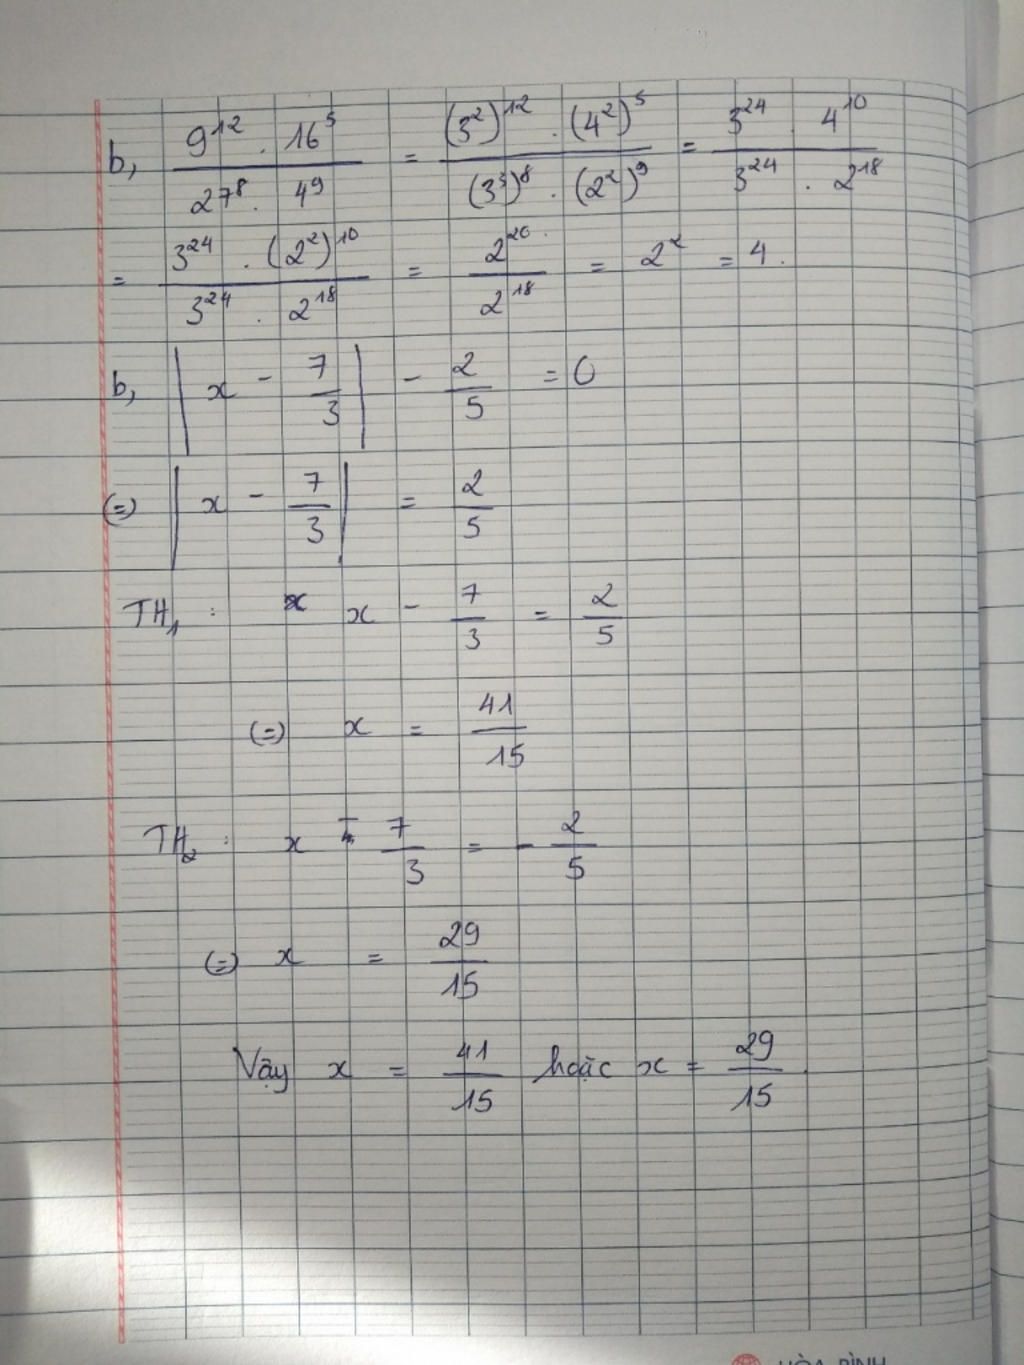 b, 9^12 . 16^5 / 27^8 . 4^9 = (3^2)^12 . (4^2)^5 / (3^3)^8 . (2^2)^9 = 3^24 . 4^10 / 3^24 . 2^18
= 3^24 . (2^2)^10 / 3^24 . 2^18 = 2^20 / 2^18 = 2^2 = 4.
b, | x - 7/3 | - 2/5 = 0
(=) | x - 7/3 | = 2/5
TH1 : x x - 7/3 = 2/5
(=) x = 41/15
TH2 : x - 7/3 = - 2/5
(=) x = 29/15
Vậy x = 41/15 hoặc x = 29/15
HÒA BÌNH